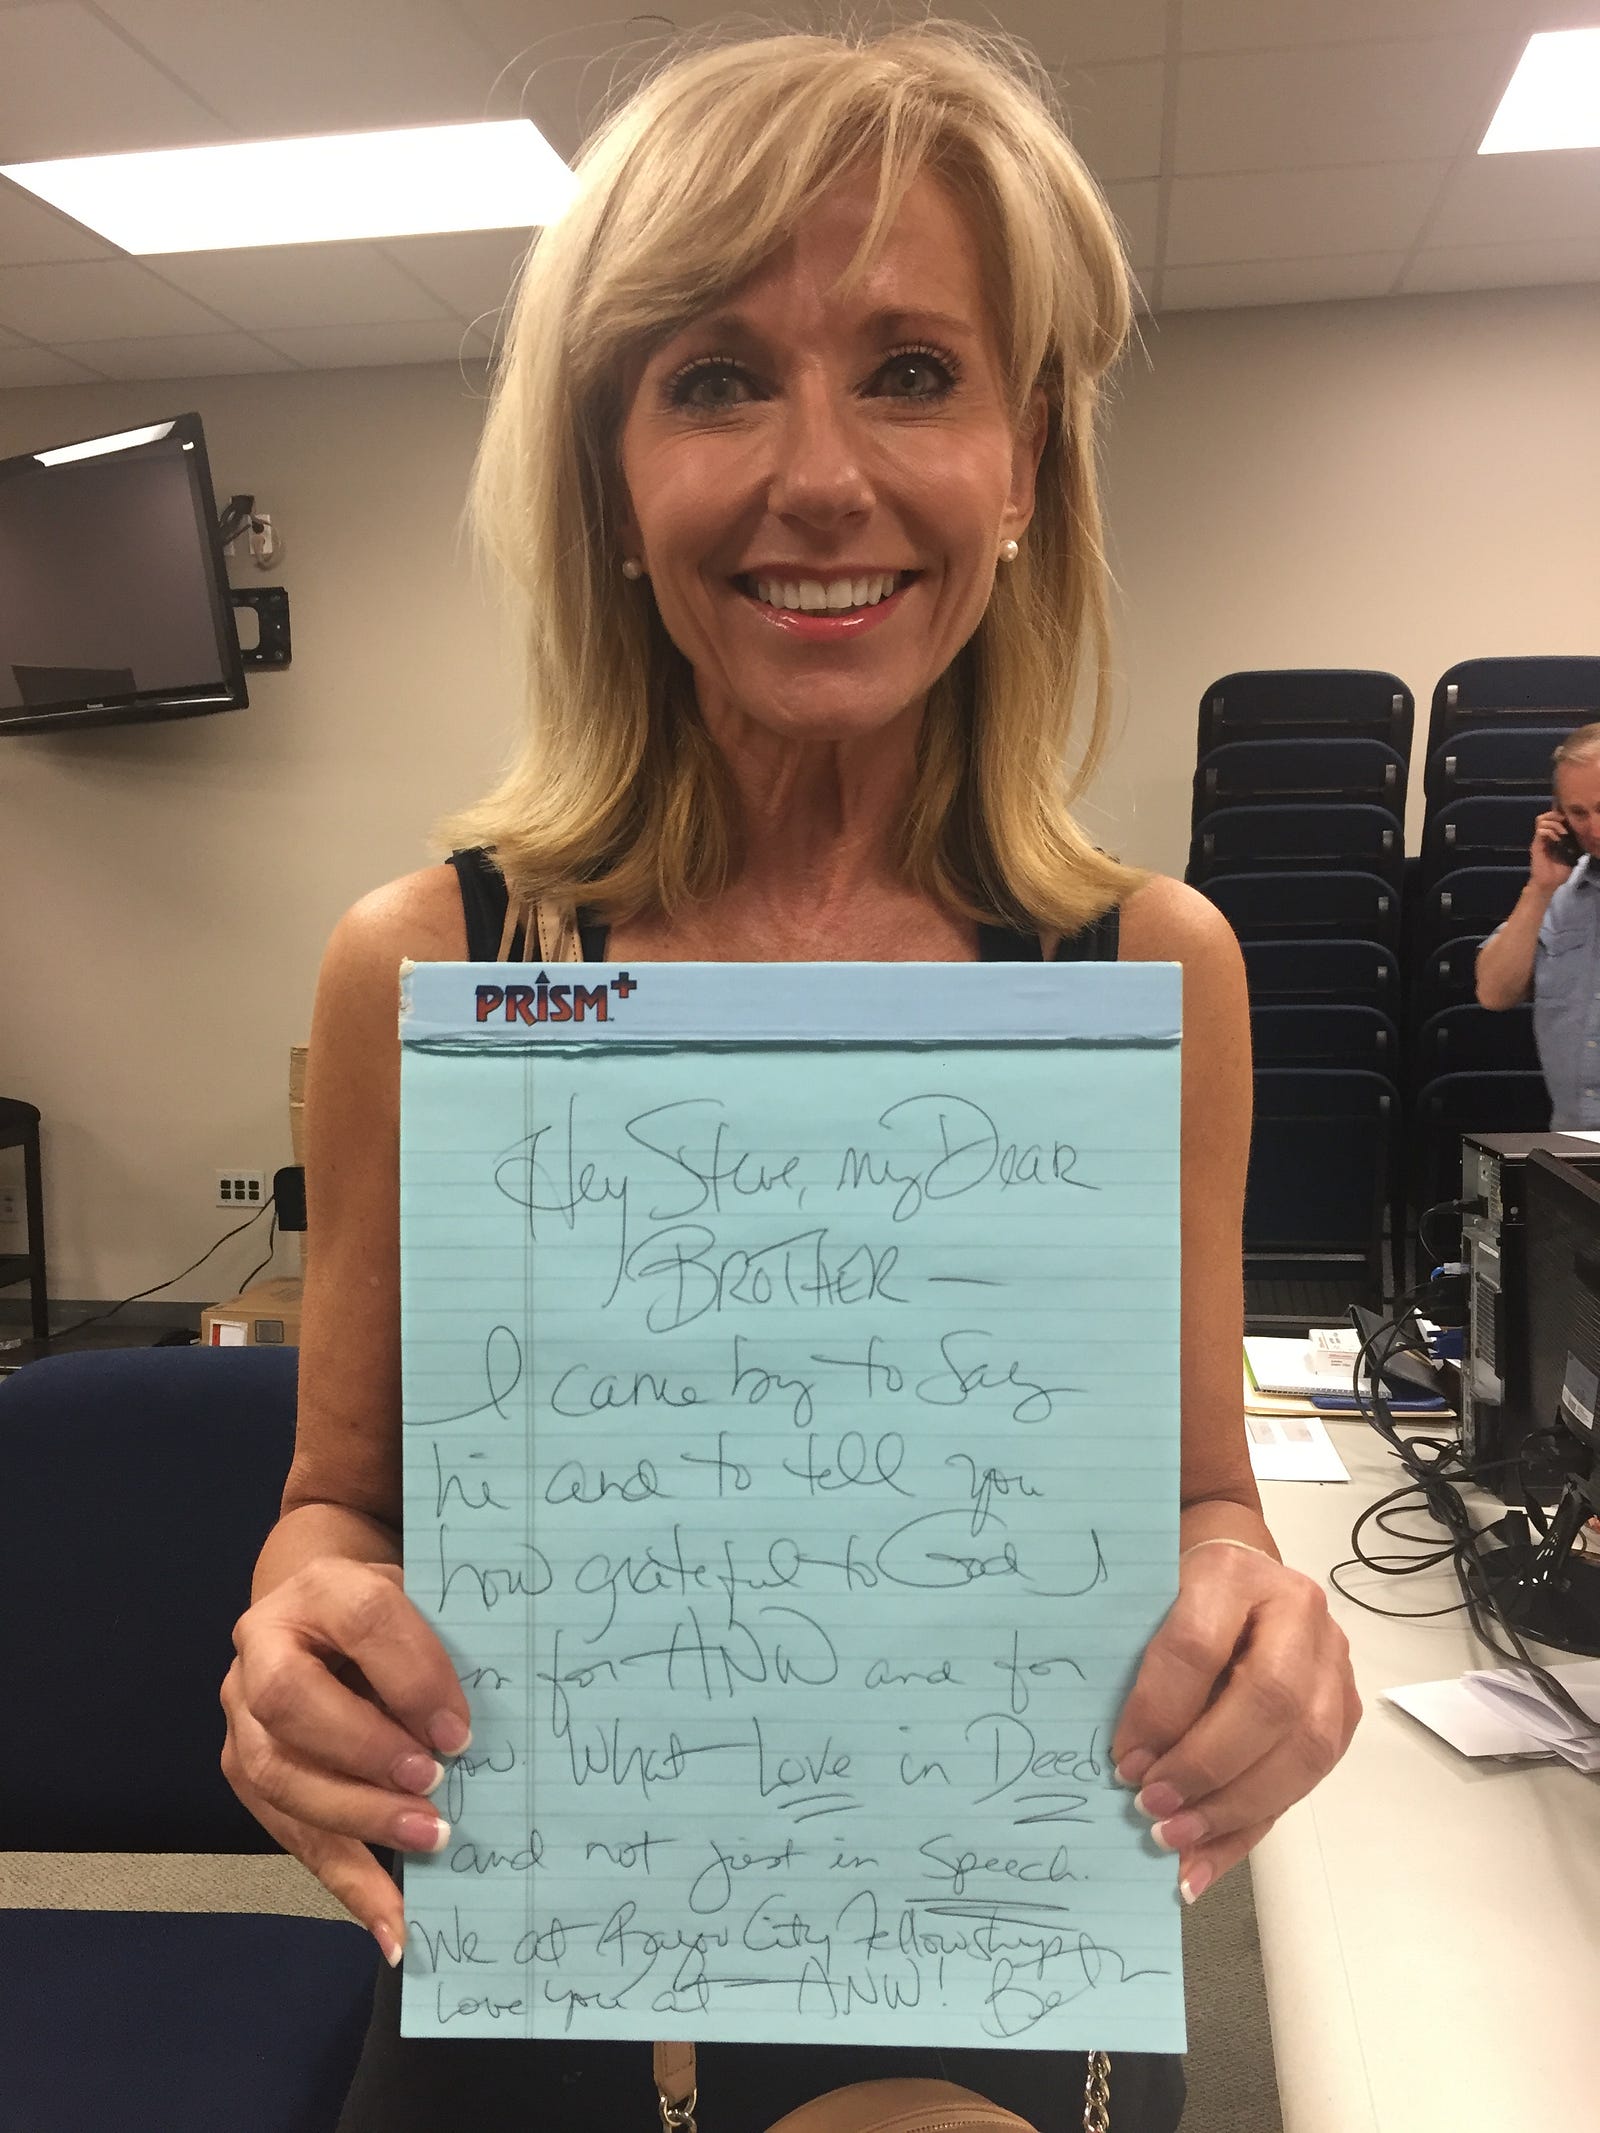 PRISM+
Hey Steve, my Dear
BROTHER —
I came by to say
hi and to tell you
how grateful to God I
for ANW and for
What Love in Deeds
and not just in Speech.
We at Bayou City Fellowship
love you at ANW! Be